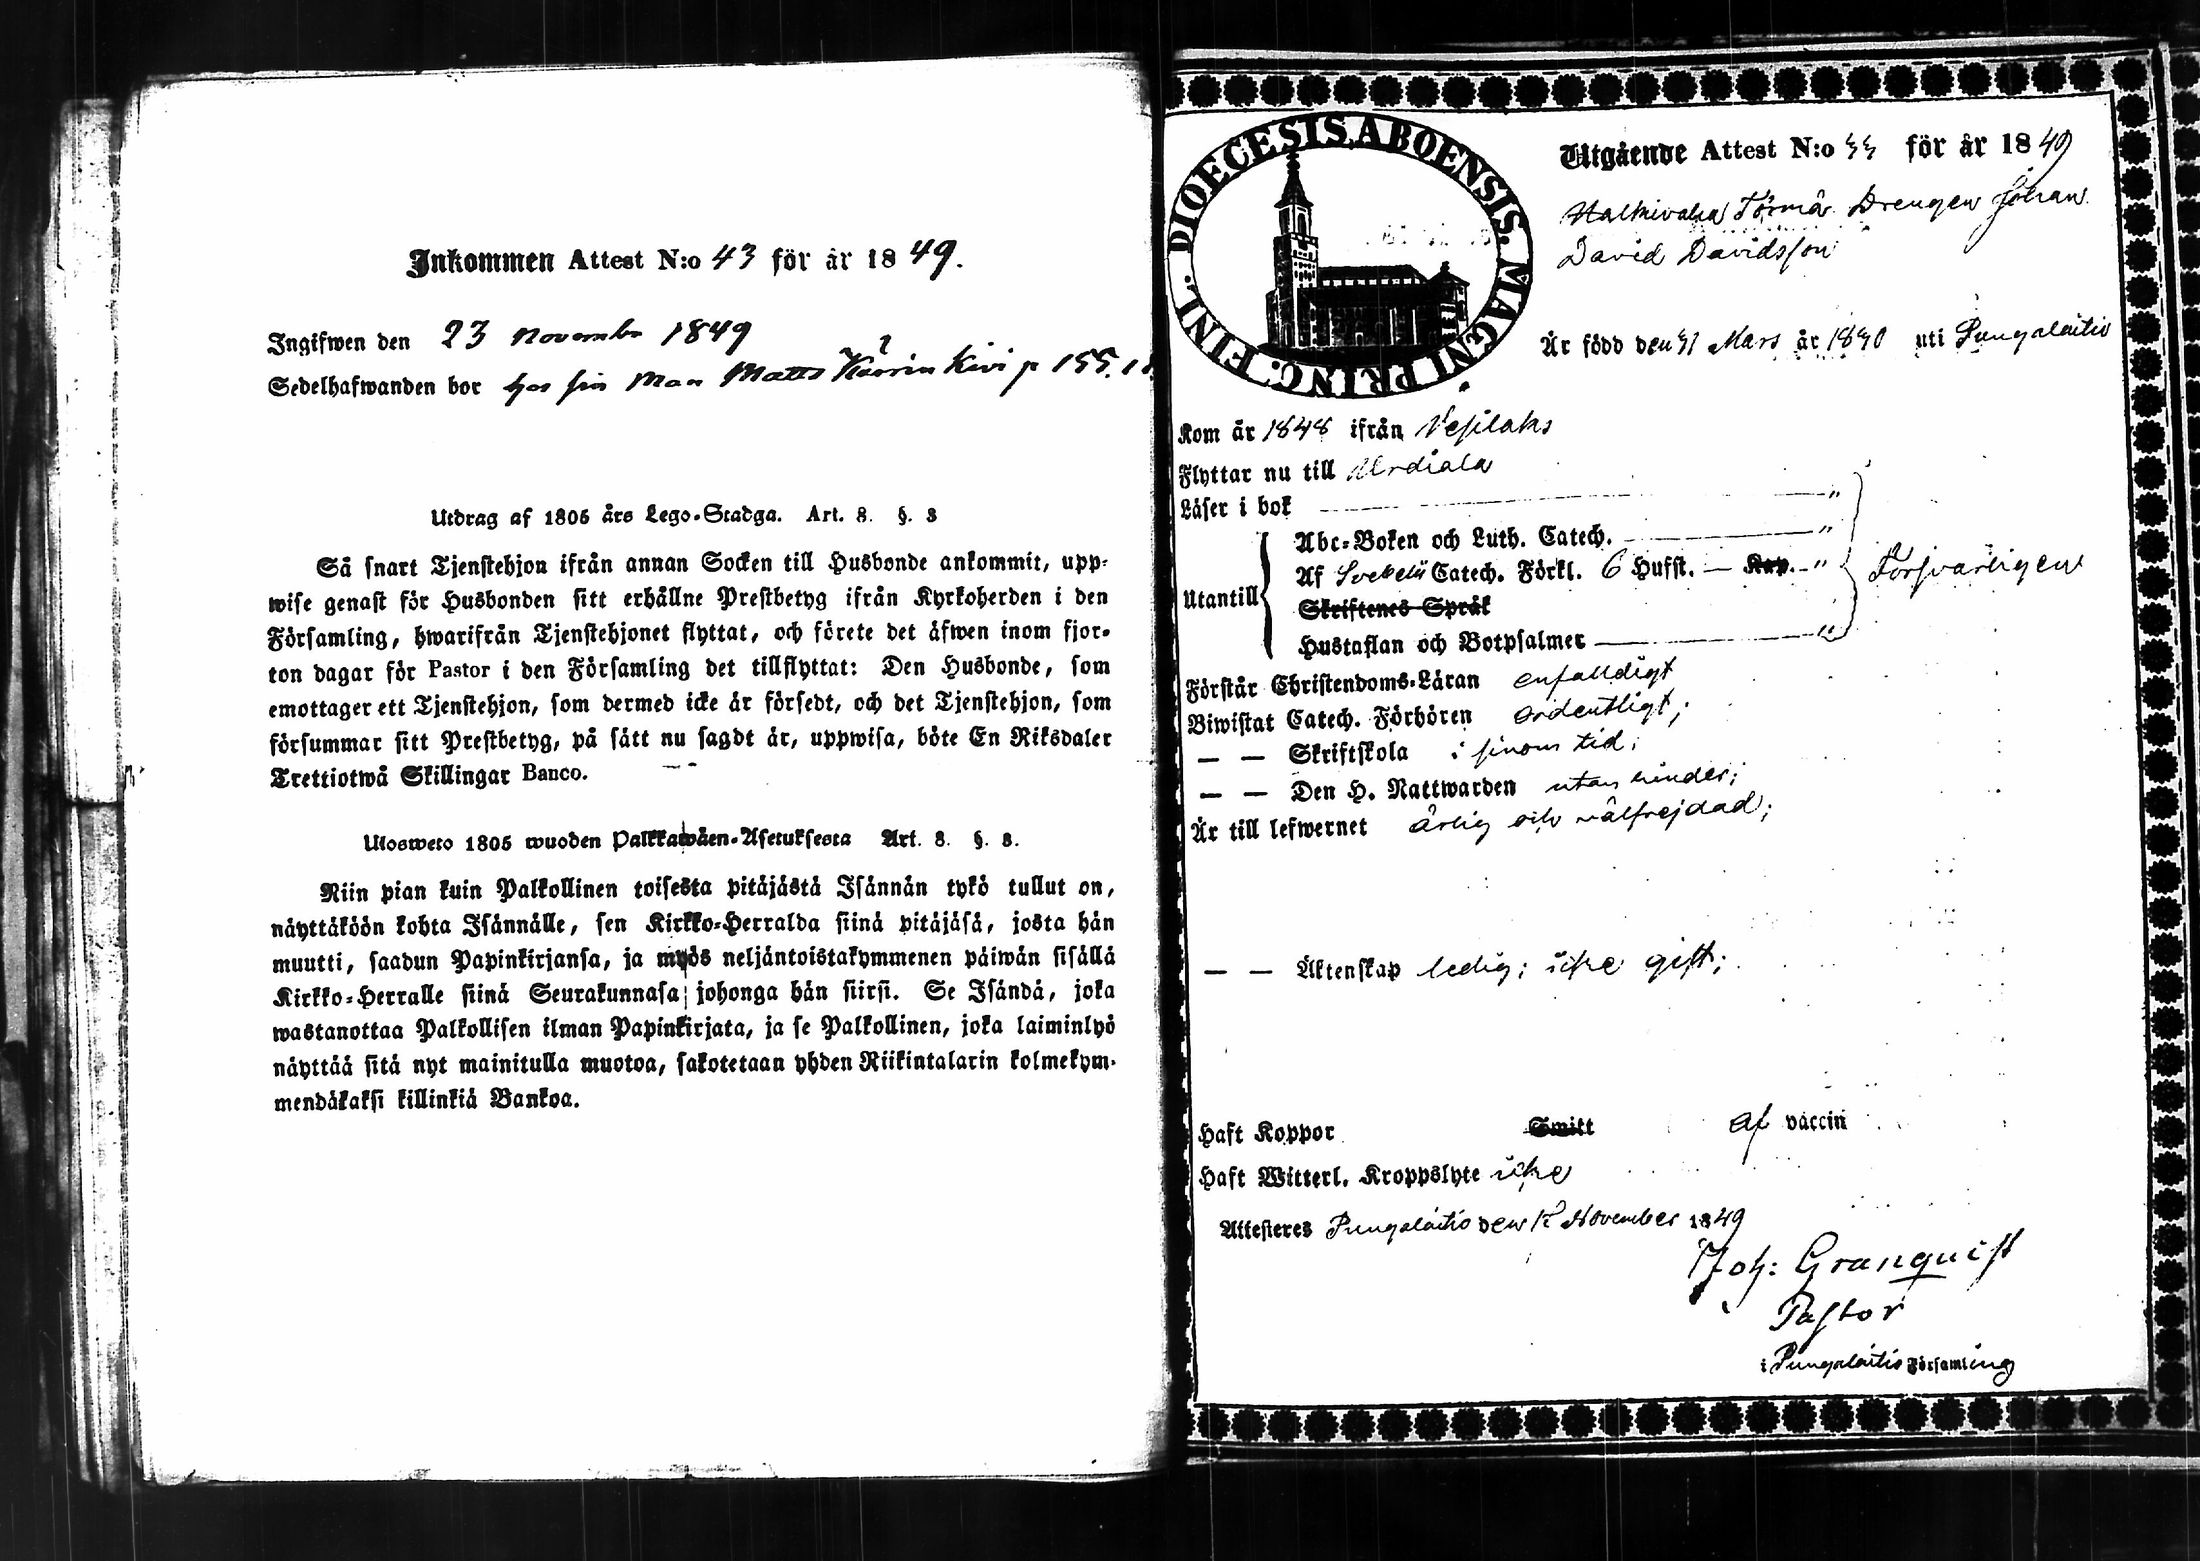 Inkommen Attest N:o 43 för år 1849.
Ingifwen den 23 November 1849
Sedelhafwanden bor hos sin Mor Matts Kivi p 155.
Utdrag af 1805 års Lego-Stadga. Art. 8. §. 3
Så snart Tjenstehjon ifrån annan Socken till Husbonde ankommit, upp-
wise genast för Husbonden sitt erhållne Prestbetyg ifrån Kyrkoherden i den
Församling, hwarifrån Tjenstehjonet flyttat, och förete det äfwen inom fjor-
ton dagar för Pastor i den Församling det tillflyttat: Den Husbonde, som
emottager ett Tjenstehjon, som dermed icke är försedt, och det Tjenstehjon, som
försummar sitt Prestbetyg, på sätt nu sagdt är, uppwisa, böte En Riksdaler
Trettiotwå Skillingar Banco.
Ulosweto 1805 wuoden Palkkawäen-Asetuksesta Art. 8. §. 3.
Niin pian kuin Palkollinen toisesta pitäjästä Isännän tykö tullut on,
näyttäköön kohta Isännälle, sen Kirkko-Herralda siinä pitäjäsä, josta hän
muutti, saadun Papinkirjansa, ja myös neljäntoistakymmenen päiwän sisällä
Kirkko-Herralle siinä Seurakunnasa johonga hän siirsi. Se Isändä, joka
wastanottaa Palkollisen ilman Papinkirjata, ja se Palkollinen, joka laiminlyö
näyttää sitä nyt mainitulla muotoa, sakotetaan yhden Riikintalarin kolmekym-
mendäkaksi killinkiä Bankoa.
DIOECESIS. ABOENSIS. MAGNI PRINC. FINL.
Utgående Attest N:o för år 1849
Törmä Drengen Johan
David Davidsson
Är född den Mars år uti Pungalaitio
Kom år 1848 ifrån Vesilaks
Flyttar nu till Urdiala
Läser i bok "
Utantill
Abc-Boken och Luth. Catech. "
Af Svebelii Catech. Förkl. 6 Hufst. — Kap. "
Skriftenes Språk
Hustaflan och Botpsalmer "
Försvarligen
Förstår Christendoms-Läran enfalldigt
Biwistat Catech. Förhören ordentligt;
— — Skriftskola i sinom tid;
— — Den H. Nattwarden utan hinder;
Är till lefwernet ärlig och välfrejdad;
— — Äktenskap ledig; icke gift;
Haft Koppor Smitt af vaccin
Haft Witterl. Kroppslyte icke
Attesteres Pungalaitio den 12 November 1849
Joh: Granquist
Pastor
i Pungalaitio Församling